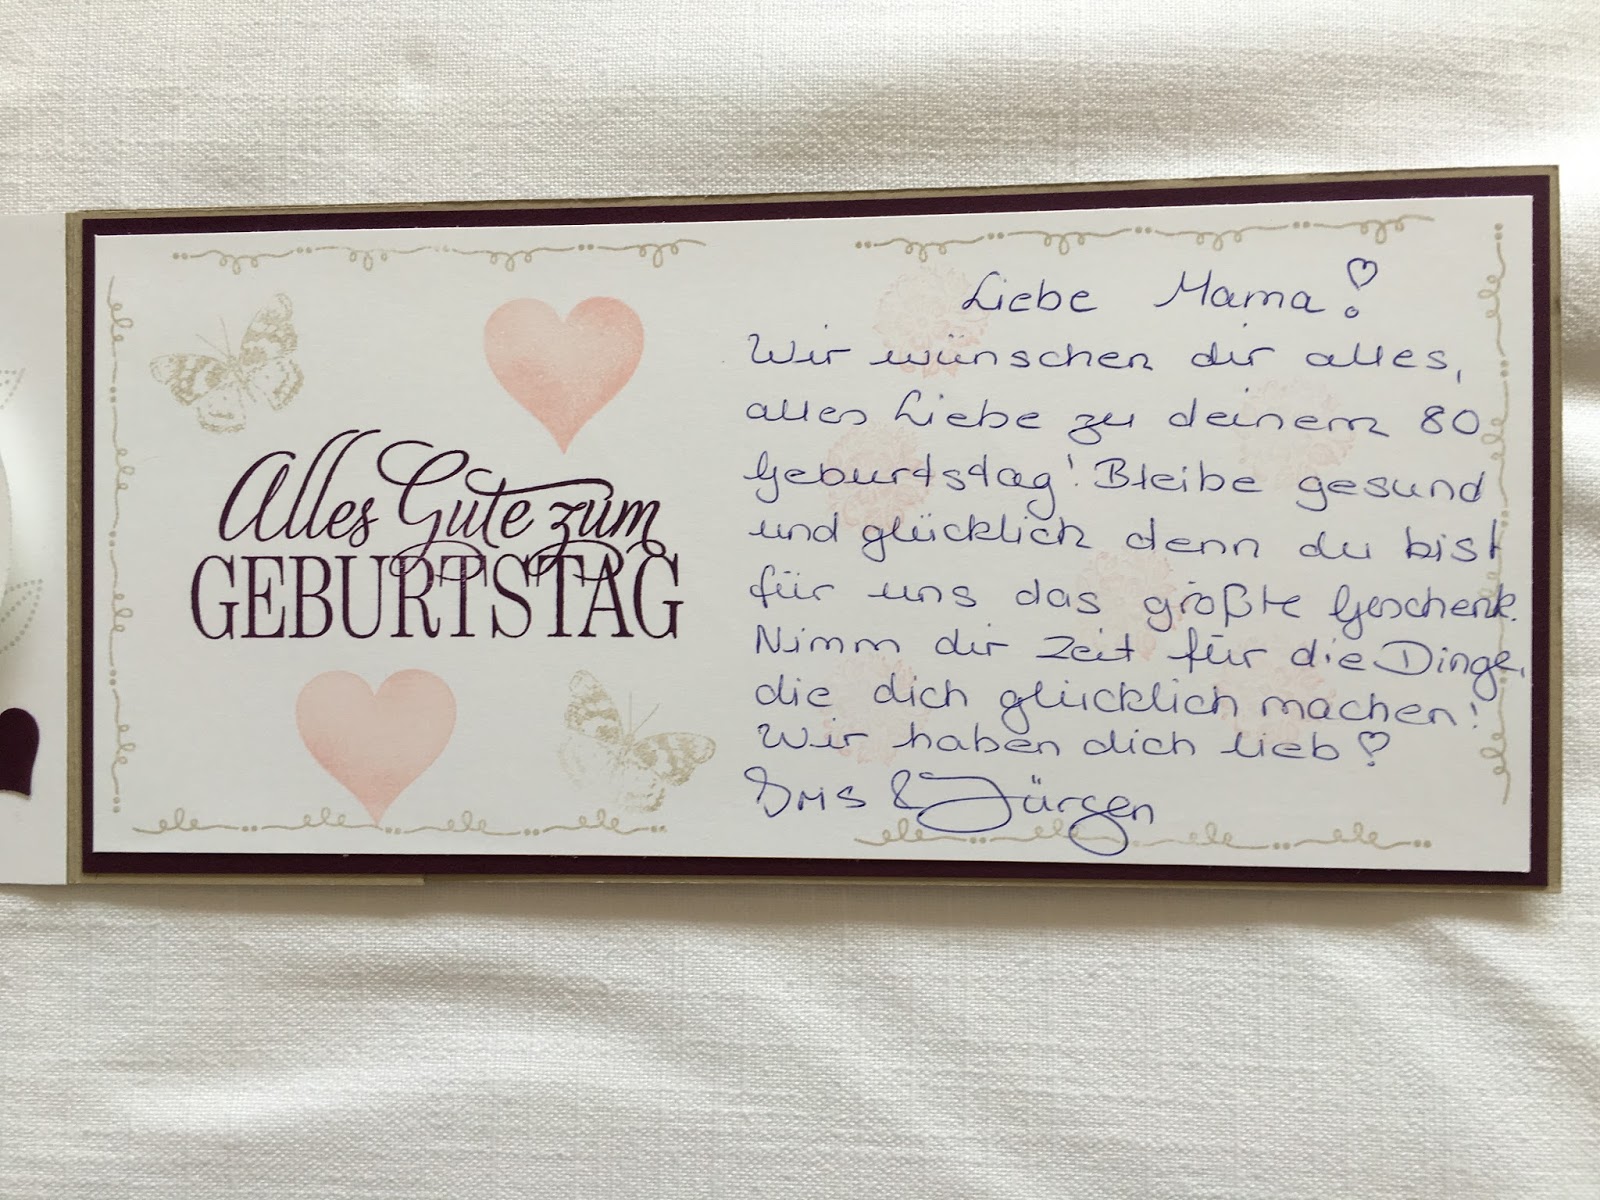 Alles Gute zum
GEBURTSTAG
Liebe Mama!
Wir wünschen dir alles,
alles Liebe zu deinem 80
Geburtstag! Bleibe gesund
und glücklich denn du bist
für uns das größte Geschenk.
Nimm dir Zeit für die Dinge,
die dich glücklich machen!
Wir haben dich lieb ♡
& Jürgen